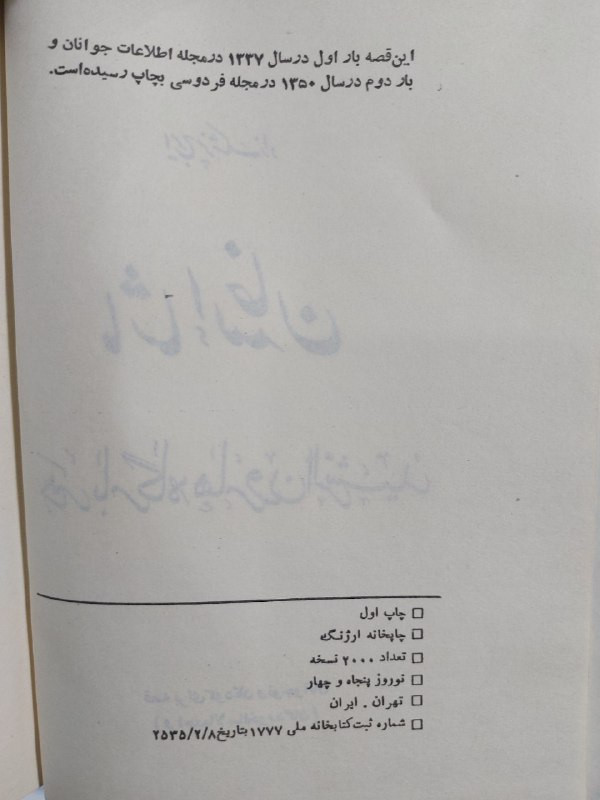 این قصه بار اول درسال ۱۳۳۷ درمجله اطلاعات جوانان و
بار دوم درسال ۱۳۵۰ درمجله فردوسی بچاپ رسیده‌است.
□ چاپ اول
□ چاپخانه ارژنگ
□ تعداد ۲۰۰۰ نسخه
□ نوروز پنجاه و چهار
□ تهران . ایران
□ شماره ثبت کتابخانه ملی ۱۷۷۷ بتاریخ ۲۵۳۵/۲/۸